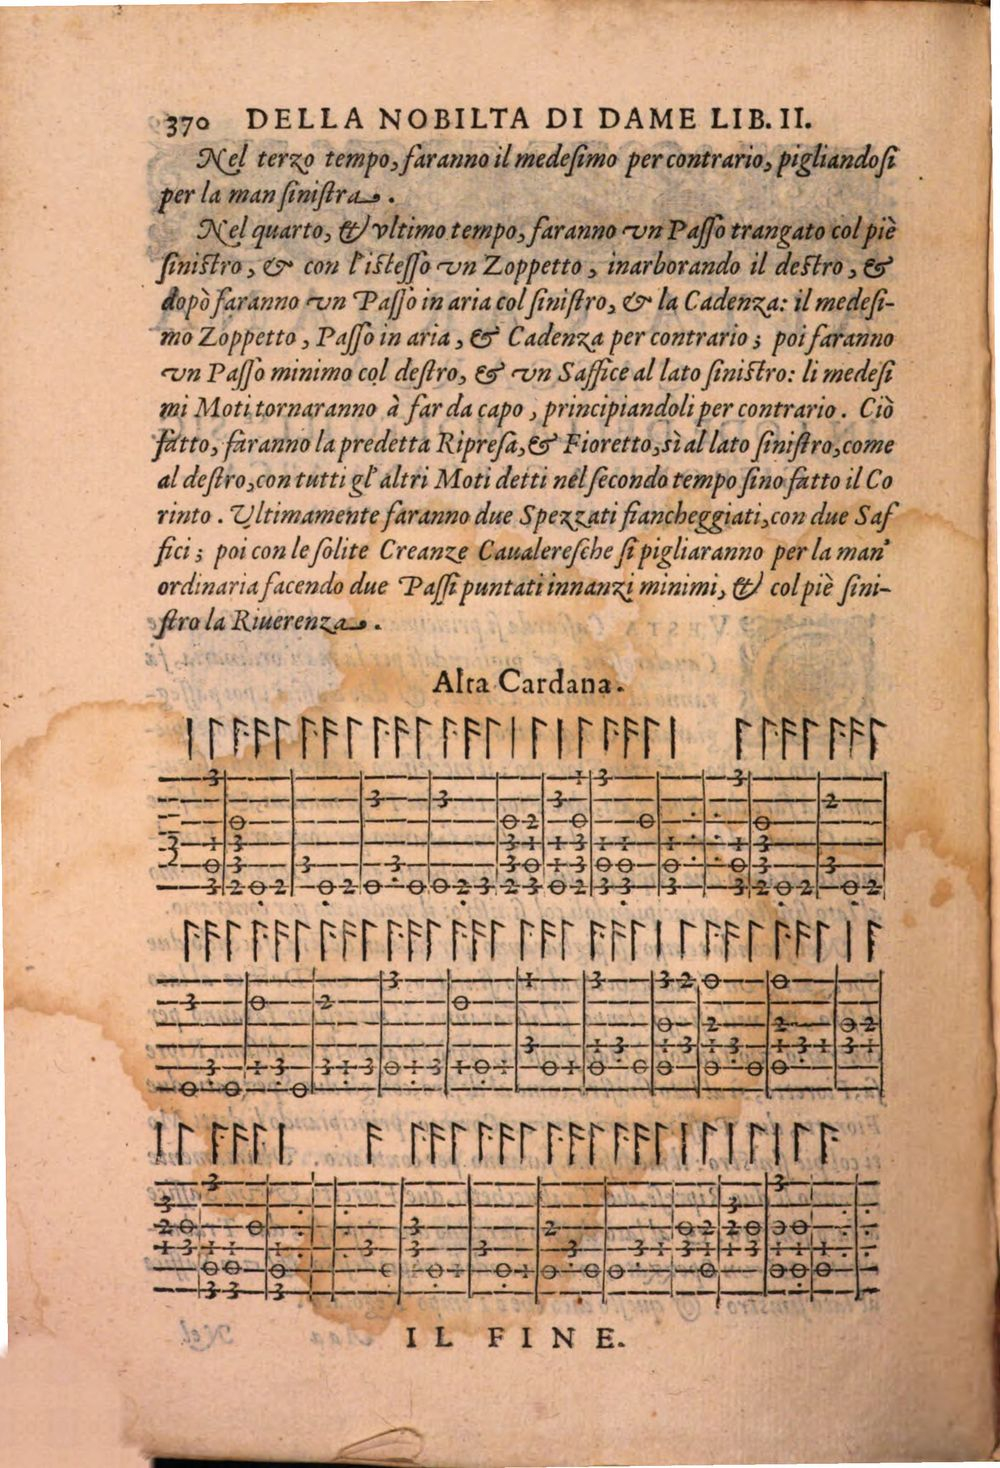 370 DELLA NOBILTA DI DAME LIB. II.
Nel terzo tempo, faranno il medeſimo per contrario, pigliandoſi
per la man ſiniſtra.
Nel quarto, & vltimo tempo, faranno vn Paſſo trangato col piè
ſiniſtro, & con l'iſteſſo vn Zoppetto, inarborando il deſtro, &
dopò faranno vn Paſſo in aria col ſiniſtro, & la Cadenza: il medeſi-
mo Zoppetto, Paſſo in aria, & Cadenza per contrario; poi faranno
vn Paſſo minimo col deſtro, & vn Saffice al lato ſiniſtro: li medeſi
mi Moti tornaranno à far da capo, principiandoli per contrario. Ciò
fatto, faranno la predetta Ripreſa, & Fioretto, sì al lato ſiniſtro, come
al deſtro, con tutti gl'altri Moti detti nel ſecondo tempo ſino fatto il Co
rinto. Vltimamente faranno due Spezzati fiancheggiati, con due Saf
fici; poi con le ſolite Creanze Caualereſche ſi pigliaranno per la man'
ordinaria facendo due Paſſi puntati innanzi minimi, & col piè ſini-
ſtro la Riuerenza.
Alta Cardana.
IL FINE.